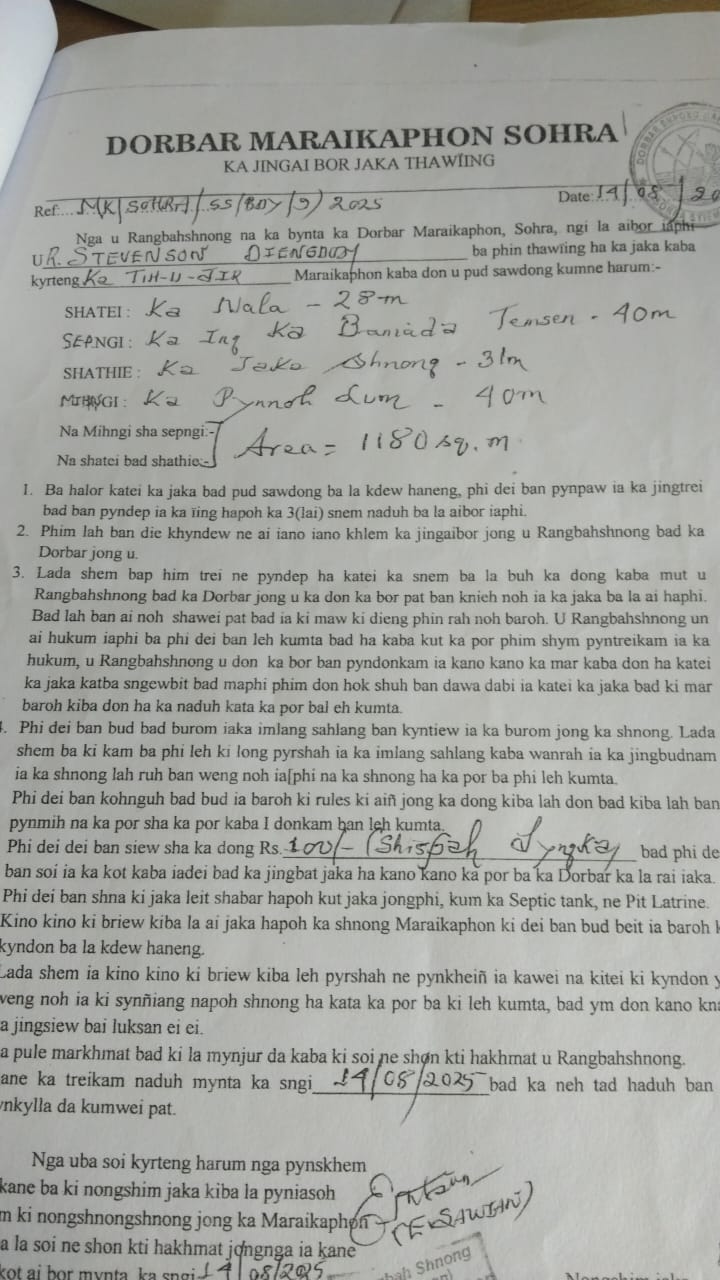 DORBAR MARAIKAPHON SOHRA
KA JINGAI BOR JAKA THAWÏING
Ref:... MK/SOHRA/SS/BDY/9/2025 Date: 14/08/20
Nga u Rangbahshnong na ka bynta ka Dorbar Maraikaphon, Sohra, ngi la aibor iaphi
U R. STEVENSON DIENGDOH ba phin thawïing ha ka jaka kaba
kyrteng Ka TIH-U-JIR Maraikaphon kaba don u pud sawdong kumne harum:-
SHATEI : Ka Wala - 28m
SEPNGI : Ka Ing Ka Baniada Temsen - 40m
SHATHIE : Ka Jaka Shnong - 31m
MIHNGI : Ka Pynnoh Lum - 40m
Na Mihngi sha sepngi:-
Na shatei bad shathie:- Area = 1180 sq. m
1. Ba halor katei ka jaka bad pud sawdong ba la kdew haneng, phi dei ban pynpaw ia ka jingtrei
bad ban pyndep ia ka ïing hapoh ka 3(lai) snem naduh ba la aibor iaphi.
2. Phim lah ban die khyndew ne ai iano iano khlem ka jingaibor jong u Rangbahshnong bad ka
Dorbar jong u.
3. Lada shem bap him trei ne pyndep ha katei ka snem ba la buh ka dong kaba mut u
Rangbahshnong bad ka Dorbar jong u ka don ka bor pat ban knieh noh ia ka jaka ba la ai haphi.
Bad lah ban ai noh shawei pat bad ia ki maw ki dieng phin rah noh baroh. U Rangbahshnong un
ai hukum iaphi ba phi dei ban leh kumta bad ha kaba kut ka por phim shym pyntreikam ia ka
hukum, u Rangbahshnong u don ka bor ban pyndonkam ia kano kano ka mar kaba don ha katei
ka jaka katba sngewbit bad maphi phim don hok shuh ban dawa dabi ia katei ka jaka bad ki mar
baroh kiba don ha ka naduh kata ka por bal eh kumta.
. Phi dei ban bud bad burom iaka imlang sahlang ban kyntiew ia ka burom jong ka shnong. Lada
shem ba ki kam ba phi leh ki long pyrshah ia ka imlang sahlang kaba wanrah ia ka jingbudnam
ia ka shnong lah ruh ban weng noh ia[phi na ka shnong ha ka por ba phi leh kumta.
Phi dei ban kohnguh bad bud ia baroh ki rules ki aiñ jong ka dong kiba lah don bad kiba lah ban
pynmih na ka por sha ka por kaba I donkam ban leh kumta.
Phi dei dei ban siew sha ka dong Rs. 100/- (Shispah Tyngka) bad phi de
ban soi ia ka kot kaba iadei bad ka jingbat jaka ha kano kano ka por ba ka Dorbar ka la rai iaka.
Phi dei ban shna ki jaka leit shabar hapoh kut jaka jongphi, kum ka Septic tank, ne Pit Latrine.
Kino kino ki briew kiba la ai jaka hapoh ka shnong Maraikaphon ki dei ban bud beit ia baroh k
kyndon ba la kdew haneng.
Lada shem ia kino kino ki briew kiba leh pyrshah ne pynkheiñ ia kawei na kitei ki kyndon y
weng noh ia ki synñiang napoh shnong ha kata ka por ba ki leh kumta, bad ym don kano kna
a jingsiew bai luksan ei ei.
a pule markhmat bad ki la mynjur da kaba ki soi ne shon kti hakhmat u Rangbahshnong.
ane ka treikam naduh mynta ka sngi 14/08/2025 bad ka neh tad haduh ban
ynkylla da kumwei pat.
Nga uba soi kyrteng harum nga pynskhem
kane ba ki nongshim jaka kiba la pyniasoh
m ki nongshnongshnong jong ka Maraikaphon
(E. SAWIAN)
a la soi ne shon kti hakhmat jongnga ia kane
kot ai bor mynta ka sngi 14/08/2025
bah Shnong